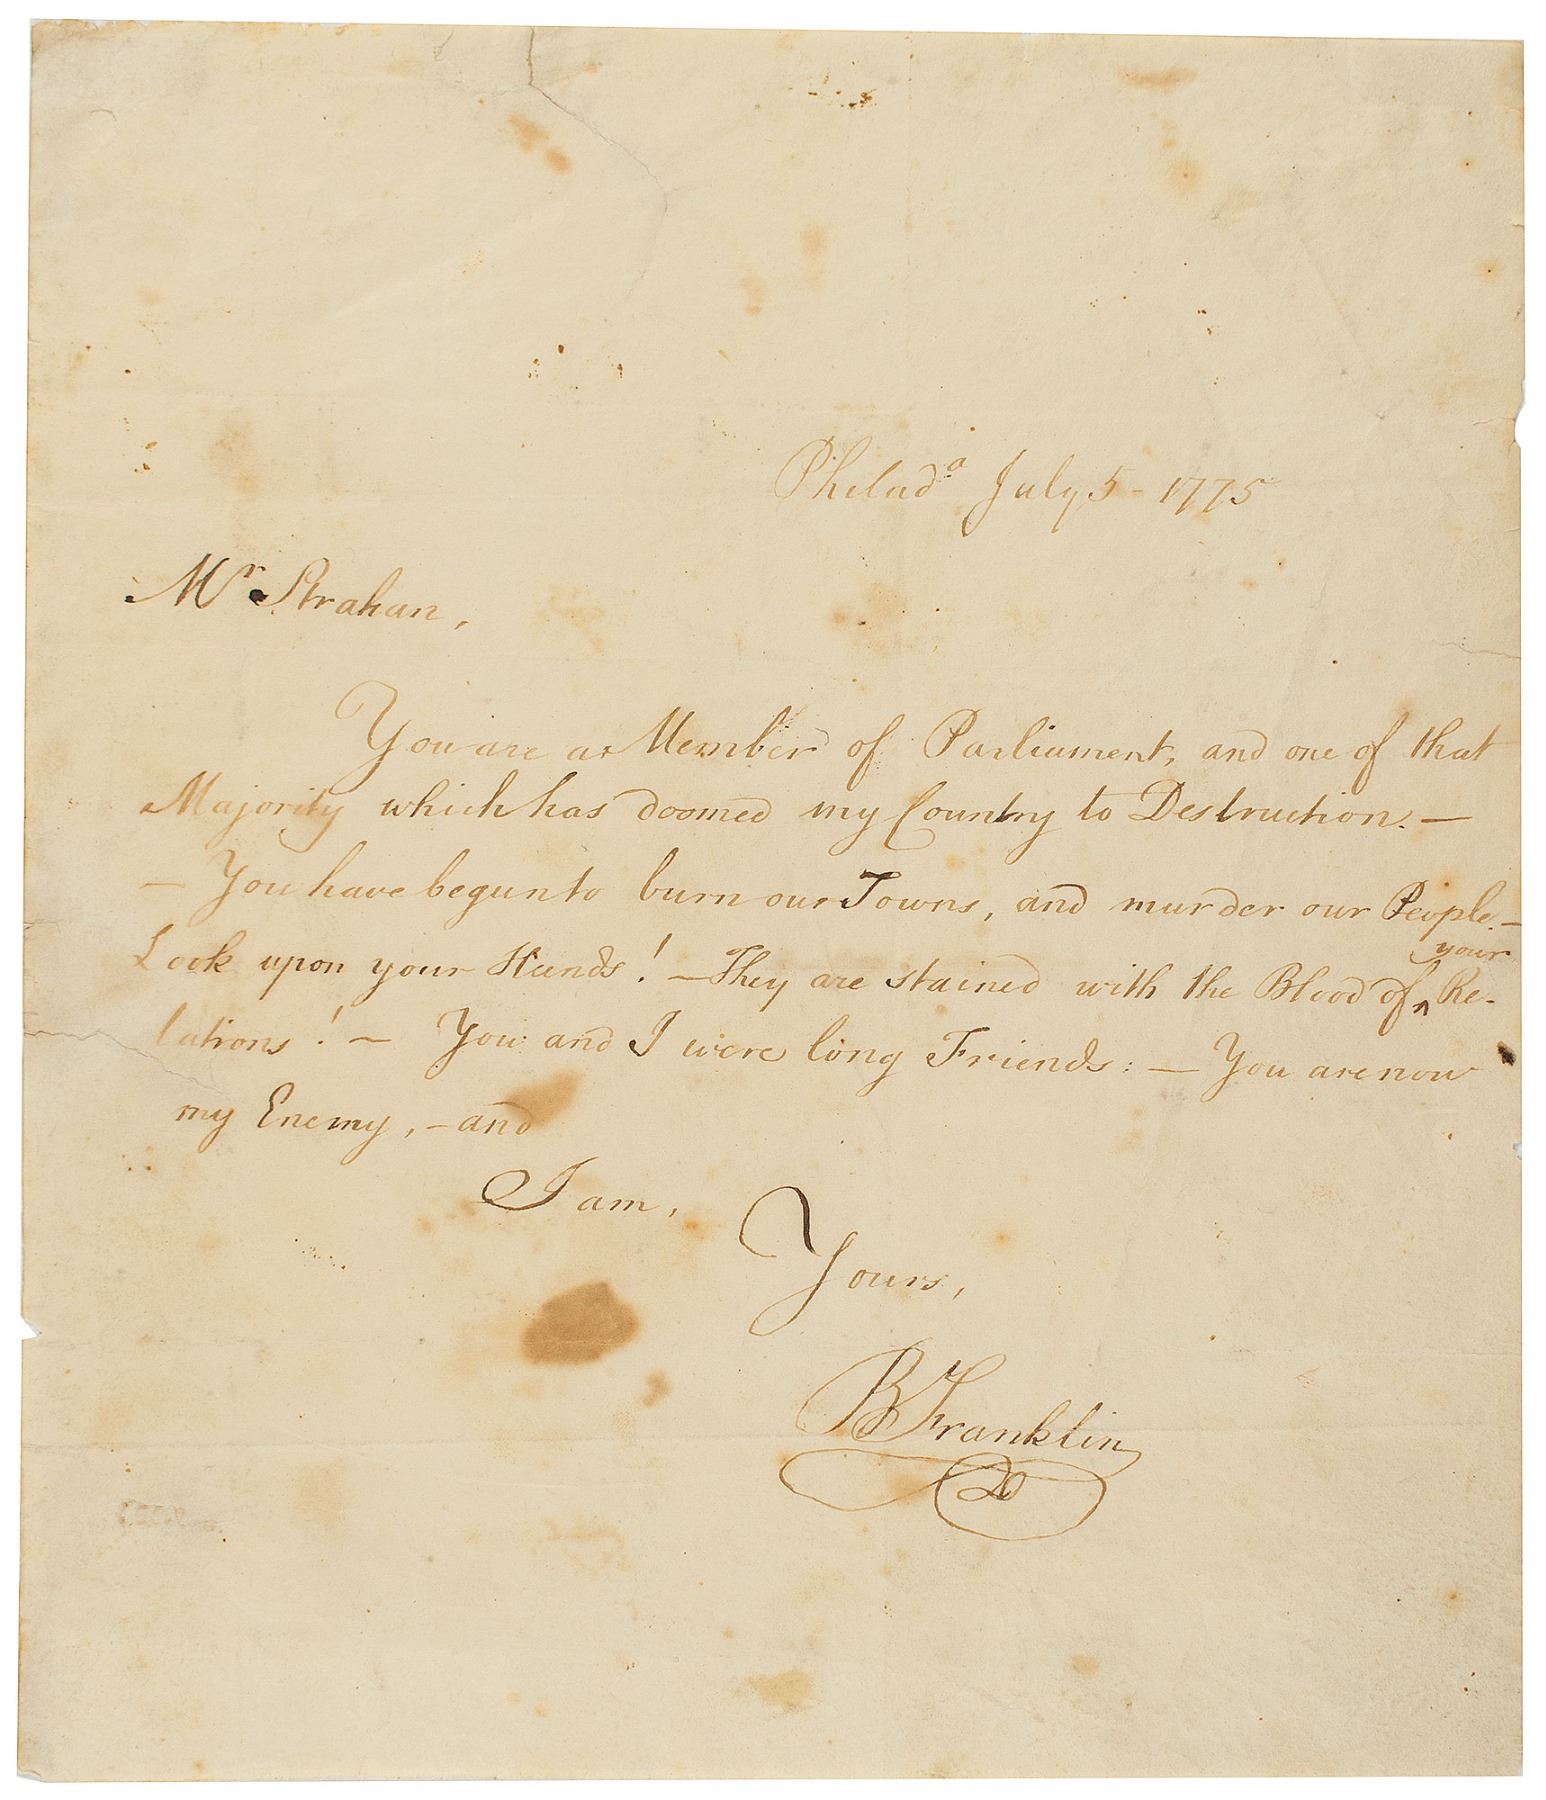 Philad^a July 5 - 1775
M^r Strahan,
You are a Member of Parliament, and one of that
Majority which has doomed my Country to Destruction. —
— You have begun to burn our Towns, and murder our People. —
Look upon your Hands! — They are stained with the Blood of your Re-
lations! — You and I were long Friends: — You are now
my Enemy, — and
I am,
Yours,
B Franklin